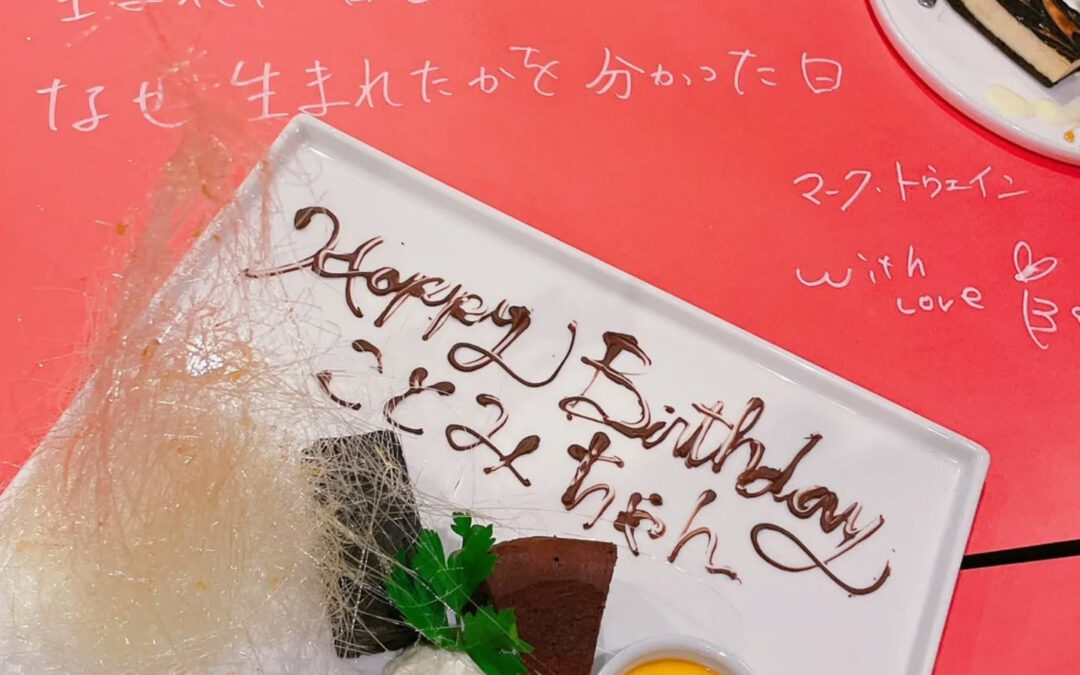 なぜ 生まれたかを 分かった日
マーク・トウェイン
with
Love
Happy Birthday
ことみちゃん